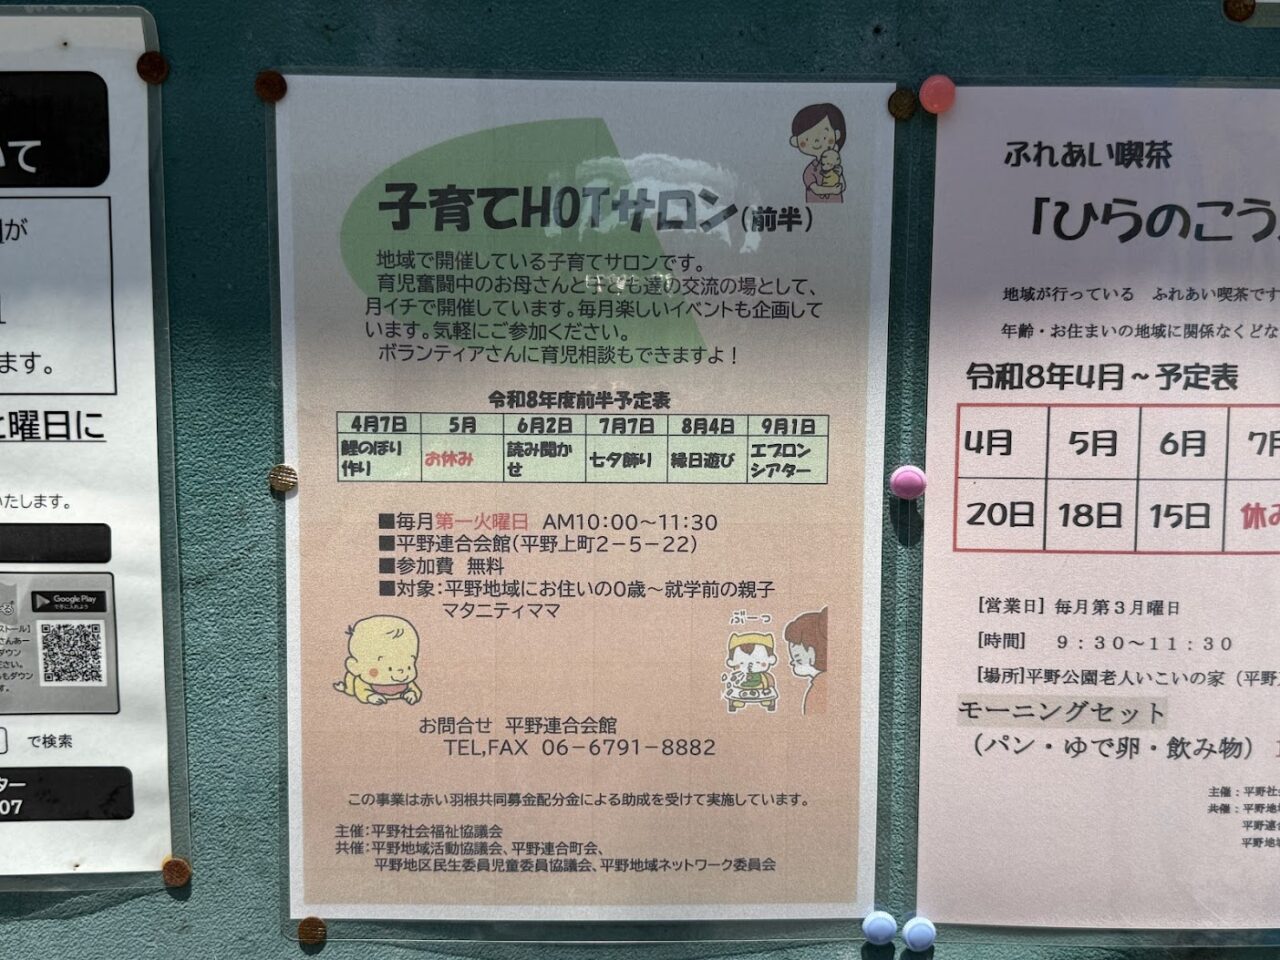 いて
が
ます。
曜日に
いたします。
Google Play
で手に入れよう
で検索
ター
07
子育てHOTサロン(前半)
地域で開催している子育てサロンです。
育児奮闘中のお母さんと子ども達の交流の場として、
月イチで開催しています。毎月楽しいイベントも企画して
います。気軽にご参加ください。
ボランティアさんに育児相談もできますよ!
令和8年度前半予定表
4月7日 5月 6月2日 7月7日 8月4日 9月1日
鯉のぼり作り お休み 読み聞かせ 七夕飾り 縁日遊び エプロンシアター
■毎月第一火曜日 AM10:00~11:30
■平野連合会館(平野上町2-5-22)
■参加費 無料
■対象:平野地域にお住いの0歳~就学前の親子
マタニティママ
ぶーっ
お問合せ 平野連合会館
TEL,FAX 06-6791-8882
この事業は赤い羽根共同募金配分金による助成を受けて実施しています。
主催:平野社会福祉協議会
共催:平野地域活動協議会、平野連合町会、
平野地区民生委員児童委員協議会、平野地域ネットワーク委員会
ふれあい喫茶
「ひらのこう
地域が行っている ふれあい喫茶です
年齢・お住まいの地域に関係なくどな
令和8年4月~予定表
4月 5月 6月 7月
20日 18日 15日 休み
[営業日] 毎月第3月曜日
[時間] 9:30~11:30
[場所]平野公園老人いこいの家(平野
モーニングセット
(パン・ゆで卵・飲み物)
主催:平野社
共催:平野地
平野連
平野地